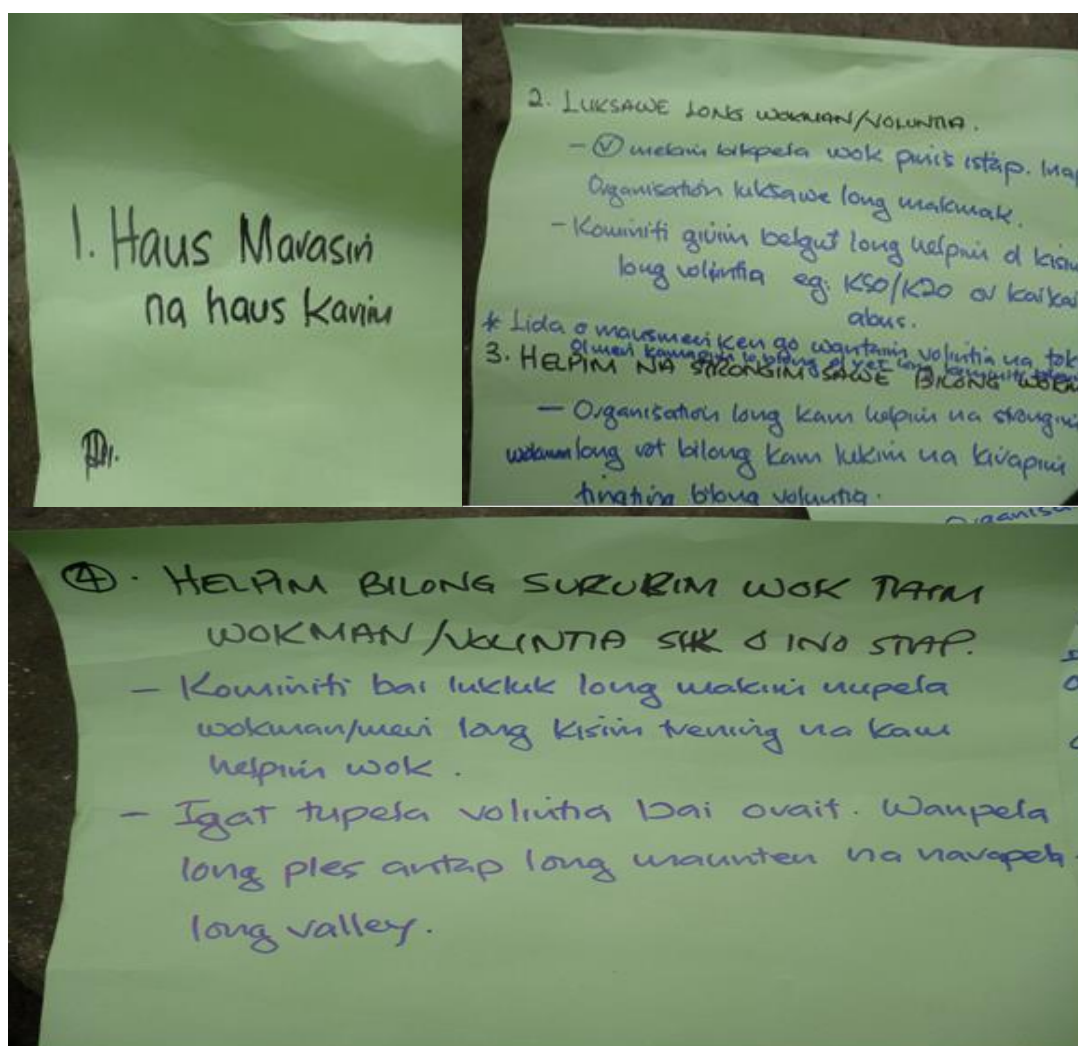 1. Haus Marasin
na haus Karim
2. LUKSAWE LONG WOKMAN/VOLUNTIA.
- V melain bikpela wok pinis istap.
Organisation luksawe long makmak.
- Kominiti givim belgut long helpim o kisim
long volintia eg. K50/K20 or kaikai
abus.
* Lida o mausmeri ken go wantaim voluntia na tok
3. HELPIM NA STRONGIM SAWE BILONG
- Organisation long kam helpim na strongim
long rot bilong kam lukim na kirapim
tingting bilong voluntia.
④. HELPIM BILONG SURUKIM WOK TAIM
WOKMAN/VOLINTIA SIK O INO STAP.
- Kominiti bai lukluk long makim nupela
wokman/meri long kisim trening na kam
helpim wok.
- Igat tupela volintia bai orait. Wanpela
long ples antap long maunten na narapela
long valley.